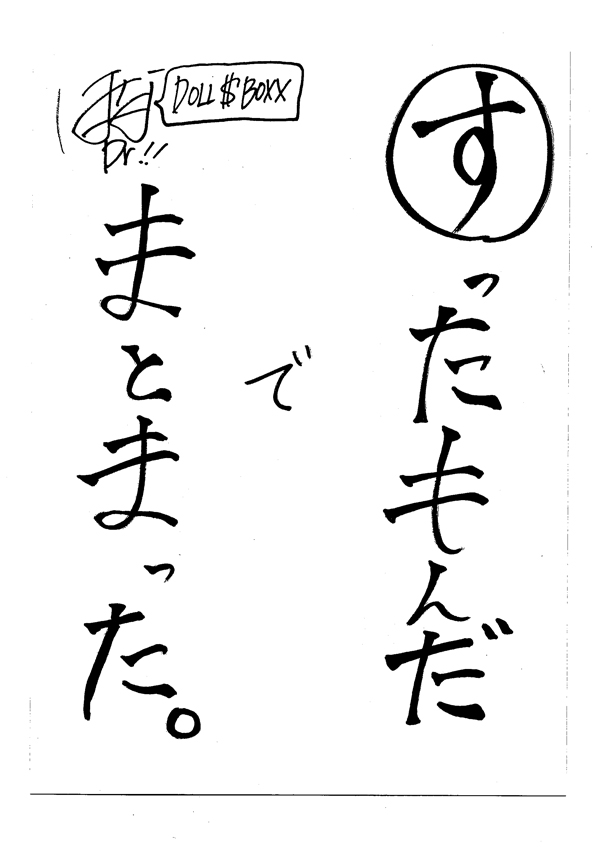 すったもんだ
で
まとまった。
DOLL$BOXX
Dr.!!